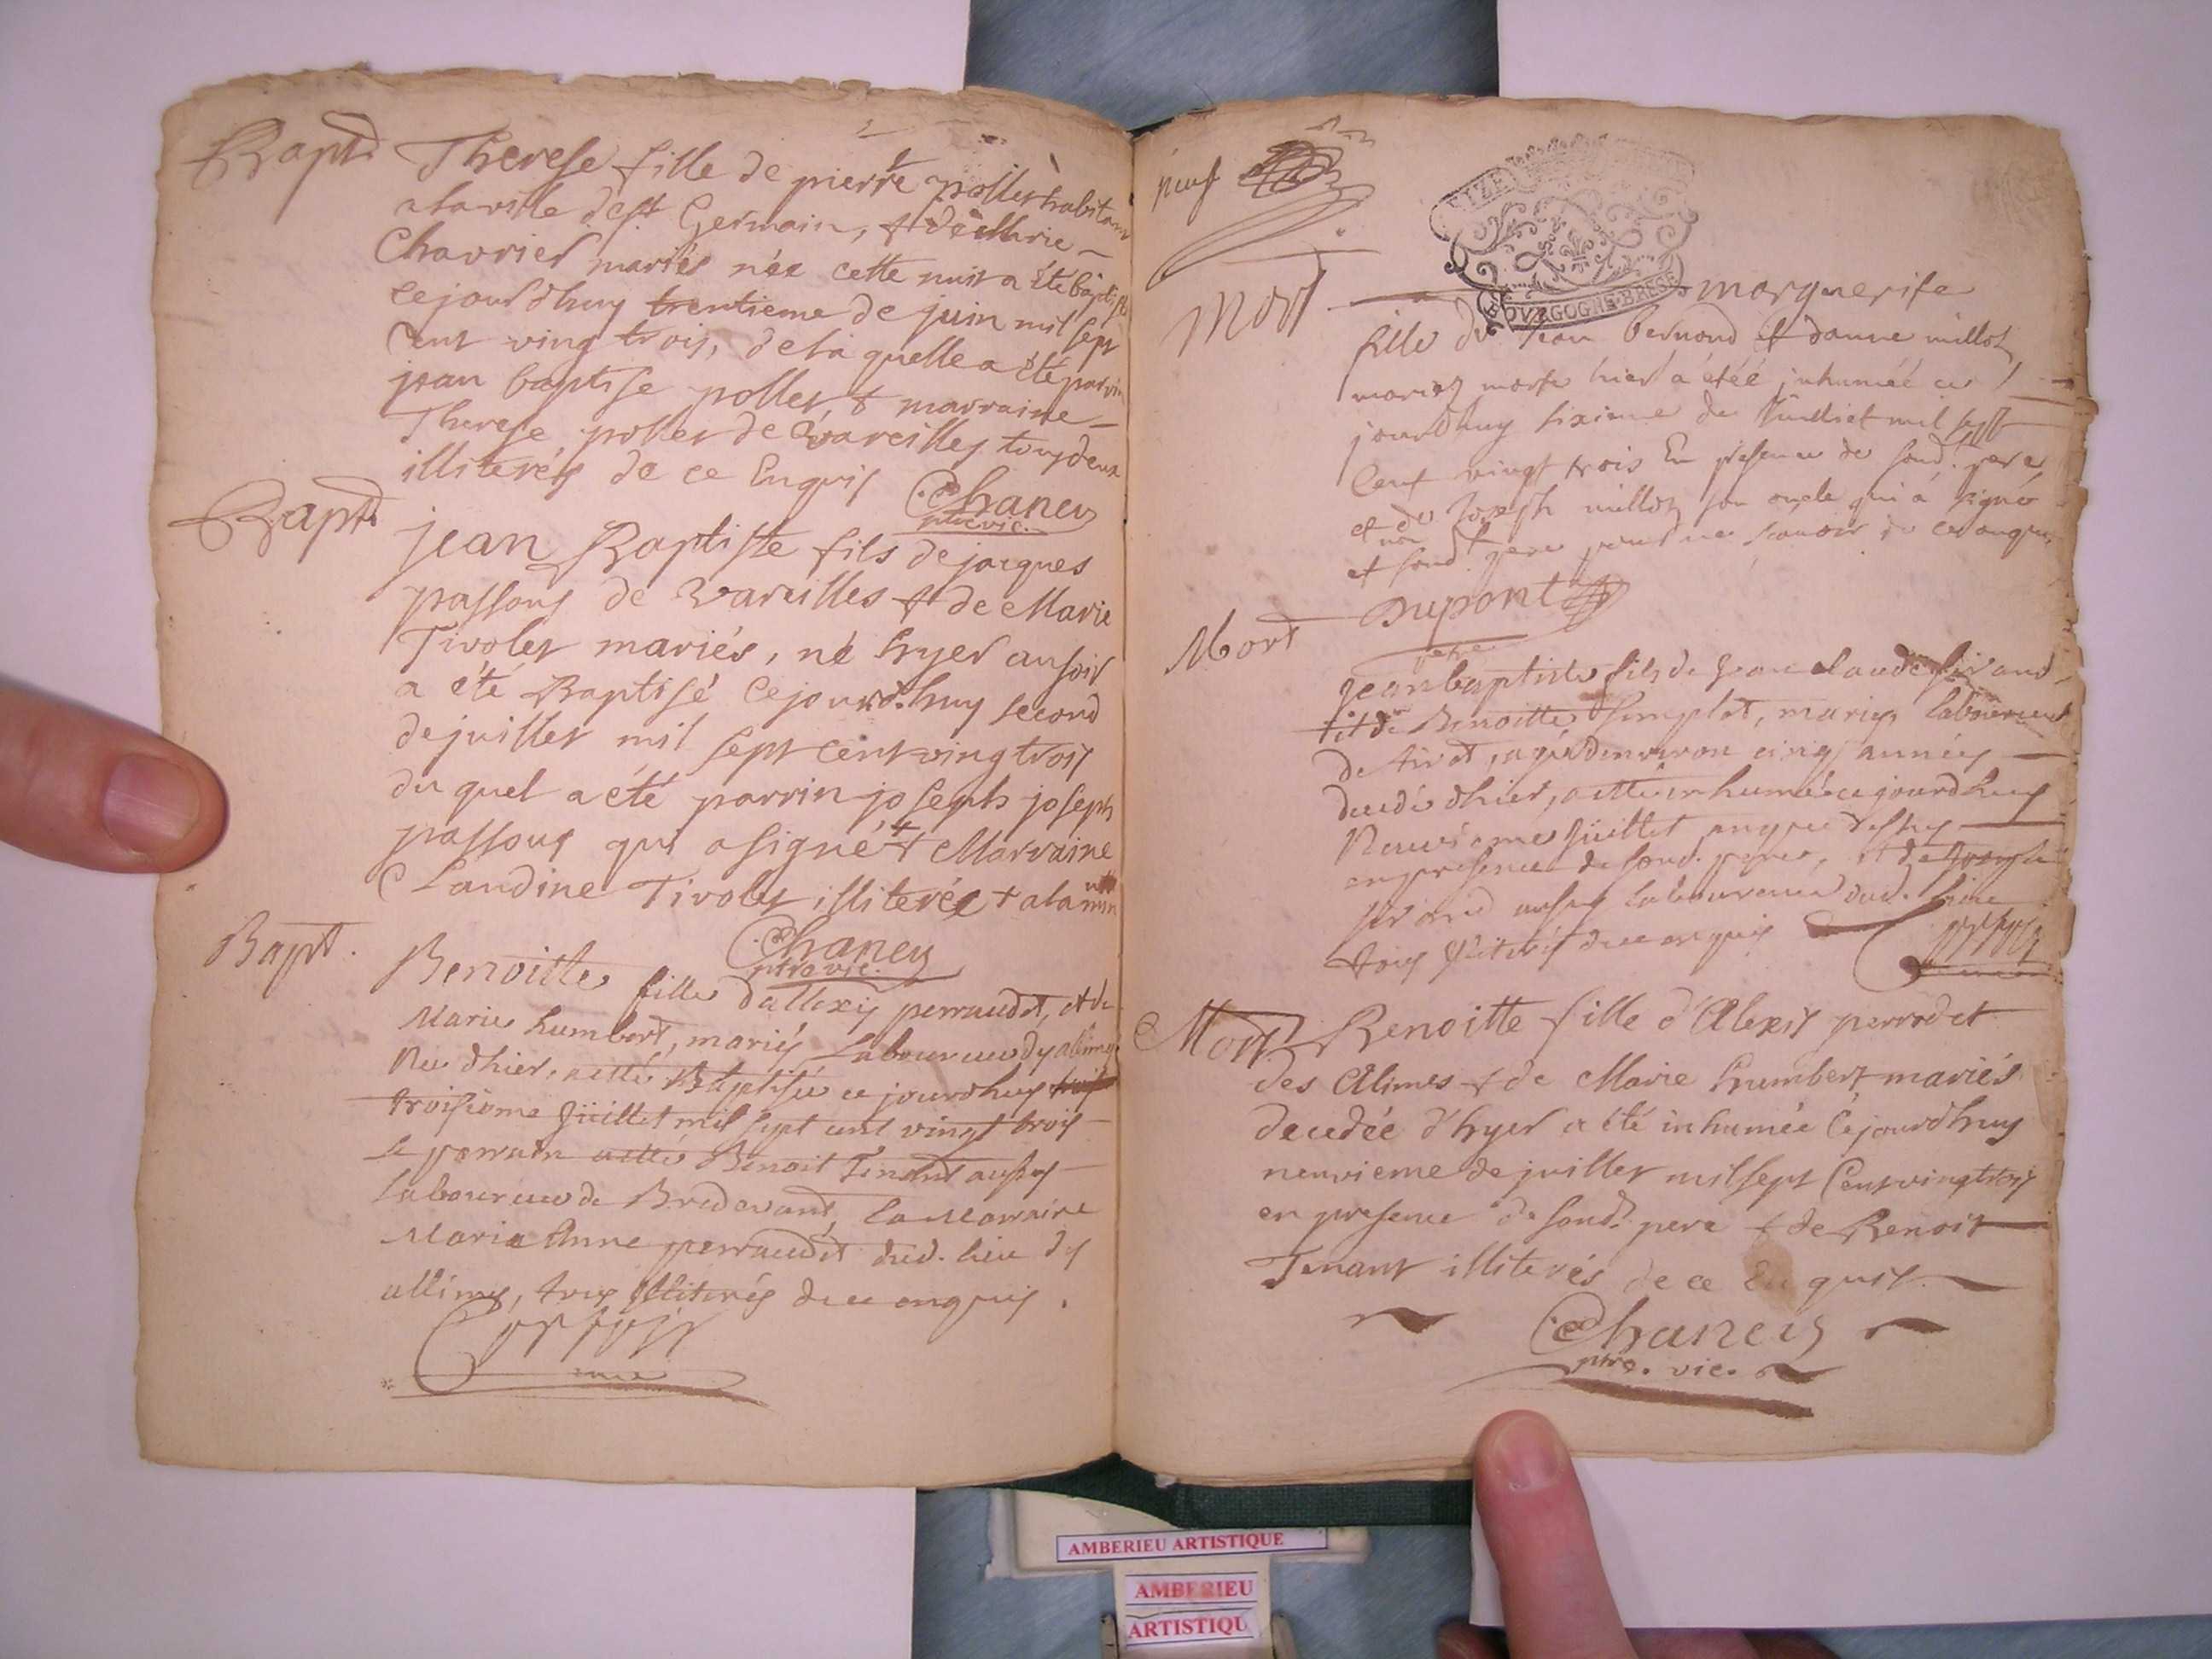 Bapt. Therese fille de pierre pollet habitant
a la ville de st Germain, & de Marie
Chavrier mariés née cette nuit a été baptisé
cejourdhuy trentieme de juin mil sept
cent ving trois, de la quelle a été parrin
jean baptiste pollet, & marraine
Therese pollet de Vareilles tous deux
illiterés de ce Enquis
Chaney
ptre vic.
Bapt. jean Baptiste fils de jacques
passous de Vareilles & de Marie
Tivolet mariés, né hyer au soir
a été Baptisé Cejourd'huy second
de juillet mil sept cent ving trois
du quel a été parrin joseph joseph
passous qui a signé & Marraine
Claudine Tivolet illiterée
Chaney
ptre vic.
Bapt. Benoitte fille d'allexis perraudet, et de
Marie humbert, mariés Laboureur dy allimes
Née dhier, a etté Baptisée ce jourdhuy trois
troisieme Juillet mil sept cent vingt trois
le parrain a etté Benoit Tenant aussy
laboureur de Bredevant, la Marraine
Marie Anne perraudet dud. lieu dy
allimes, tous illiterés de ce enquis.
neuf
BOURGOGNE·BRESSE
Mort marguerite
fille de Jean bernond et danne millot
mariez morte hier a étéé inhumée ce
jourdhuy sixieme de Juilliet mil sept
cent vingt trois En presence de sond. pere
et de Joseph millot son oncle qui a signé
et non sond. pere pour ne scavoir de ce enquis
Dupont
Mort jean baptiste fils de Jean claude
et de Benoitte, mariés laboureur
de tiret, agé denviron cinq années
decedé dhier, a etté inhumé ce jourdhuy
Neuvieme Juillet an que dessus
en presence de sond. pere, et de Joseph
aussy laboureur dud. lieu
tous illiterés de ce enquis
Mort Benoitte fille d'Alexis perrodet
des Alimes & de Marie humbert mariés
decedée d'hyer a été inhumée Cejourdhuy
neuvieme de juillet mil sept Cent ving trois
en presence de sond. pere & de Benoit
Tenant illiterés de ce Enquis.
Chaney
ptre. vic.
AMBERIEU ARTISTIQUE
AMBERIEU
ARTISTIQU